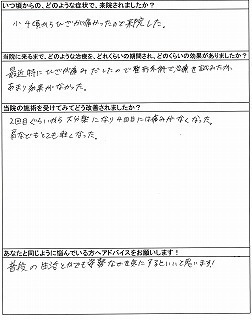 いつ頃からの、どのような症状で、来院されましたか？
小4頃からひざが痛かったので来院した。
当院に来るまで、どのような治療を、どれくらいの期間され、どのくらいの効果がありましたか？
最近特にひざが痛みだしたので整形外科で治療を試みたが、
あまり効果がなかった。
当院の施術を受けてみてどう改善されましたか？
2回目ぐらいから大分楽になり4回目には痛みがなくなった。
肩などもとても軽くなった。
あなたと同じように悩んでいる方へアドバイスをお願いします！
普段の生活とかでも姿勢などを気にするといいと思います！